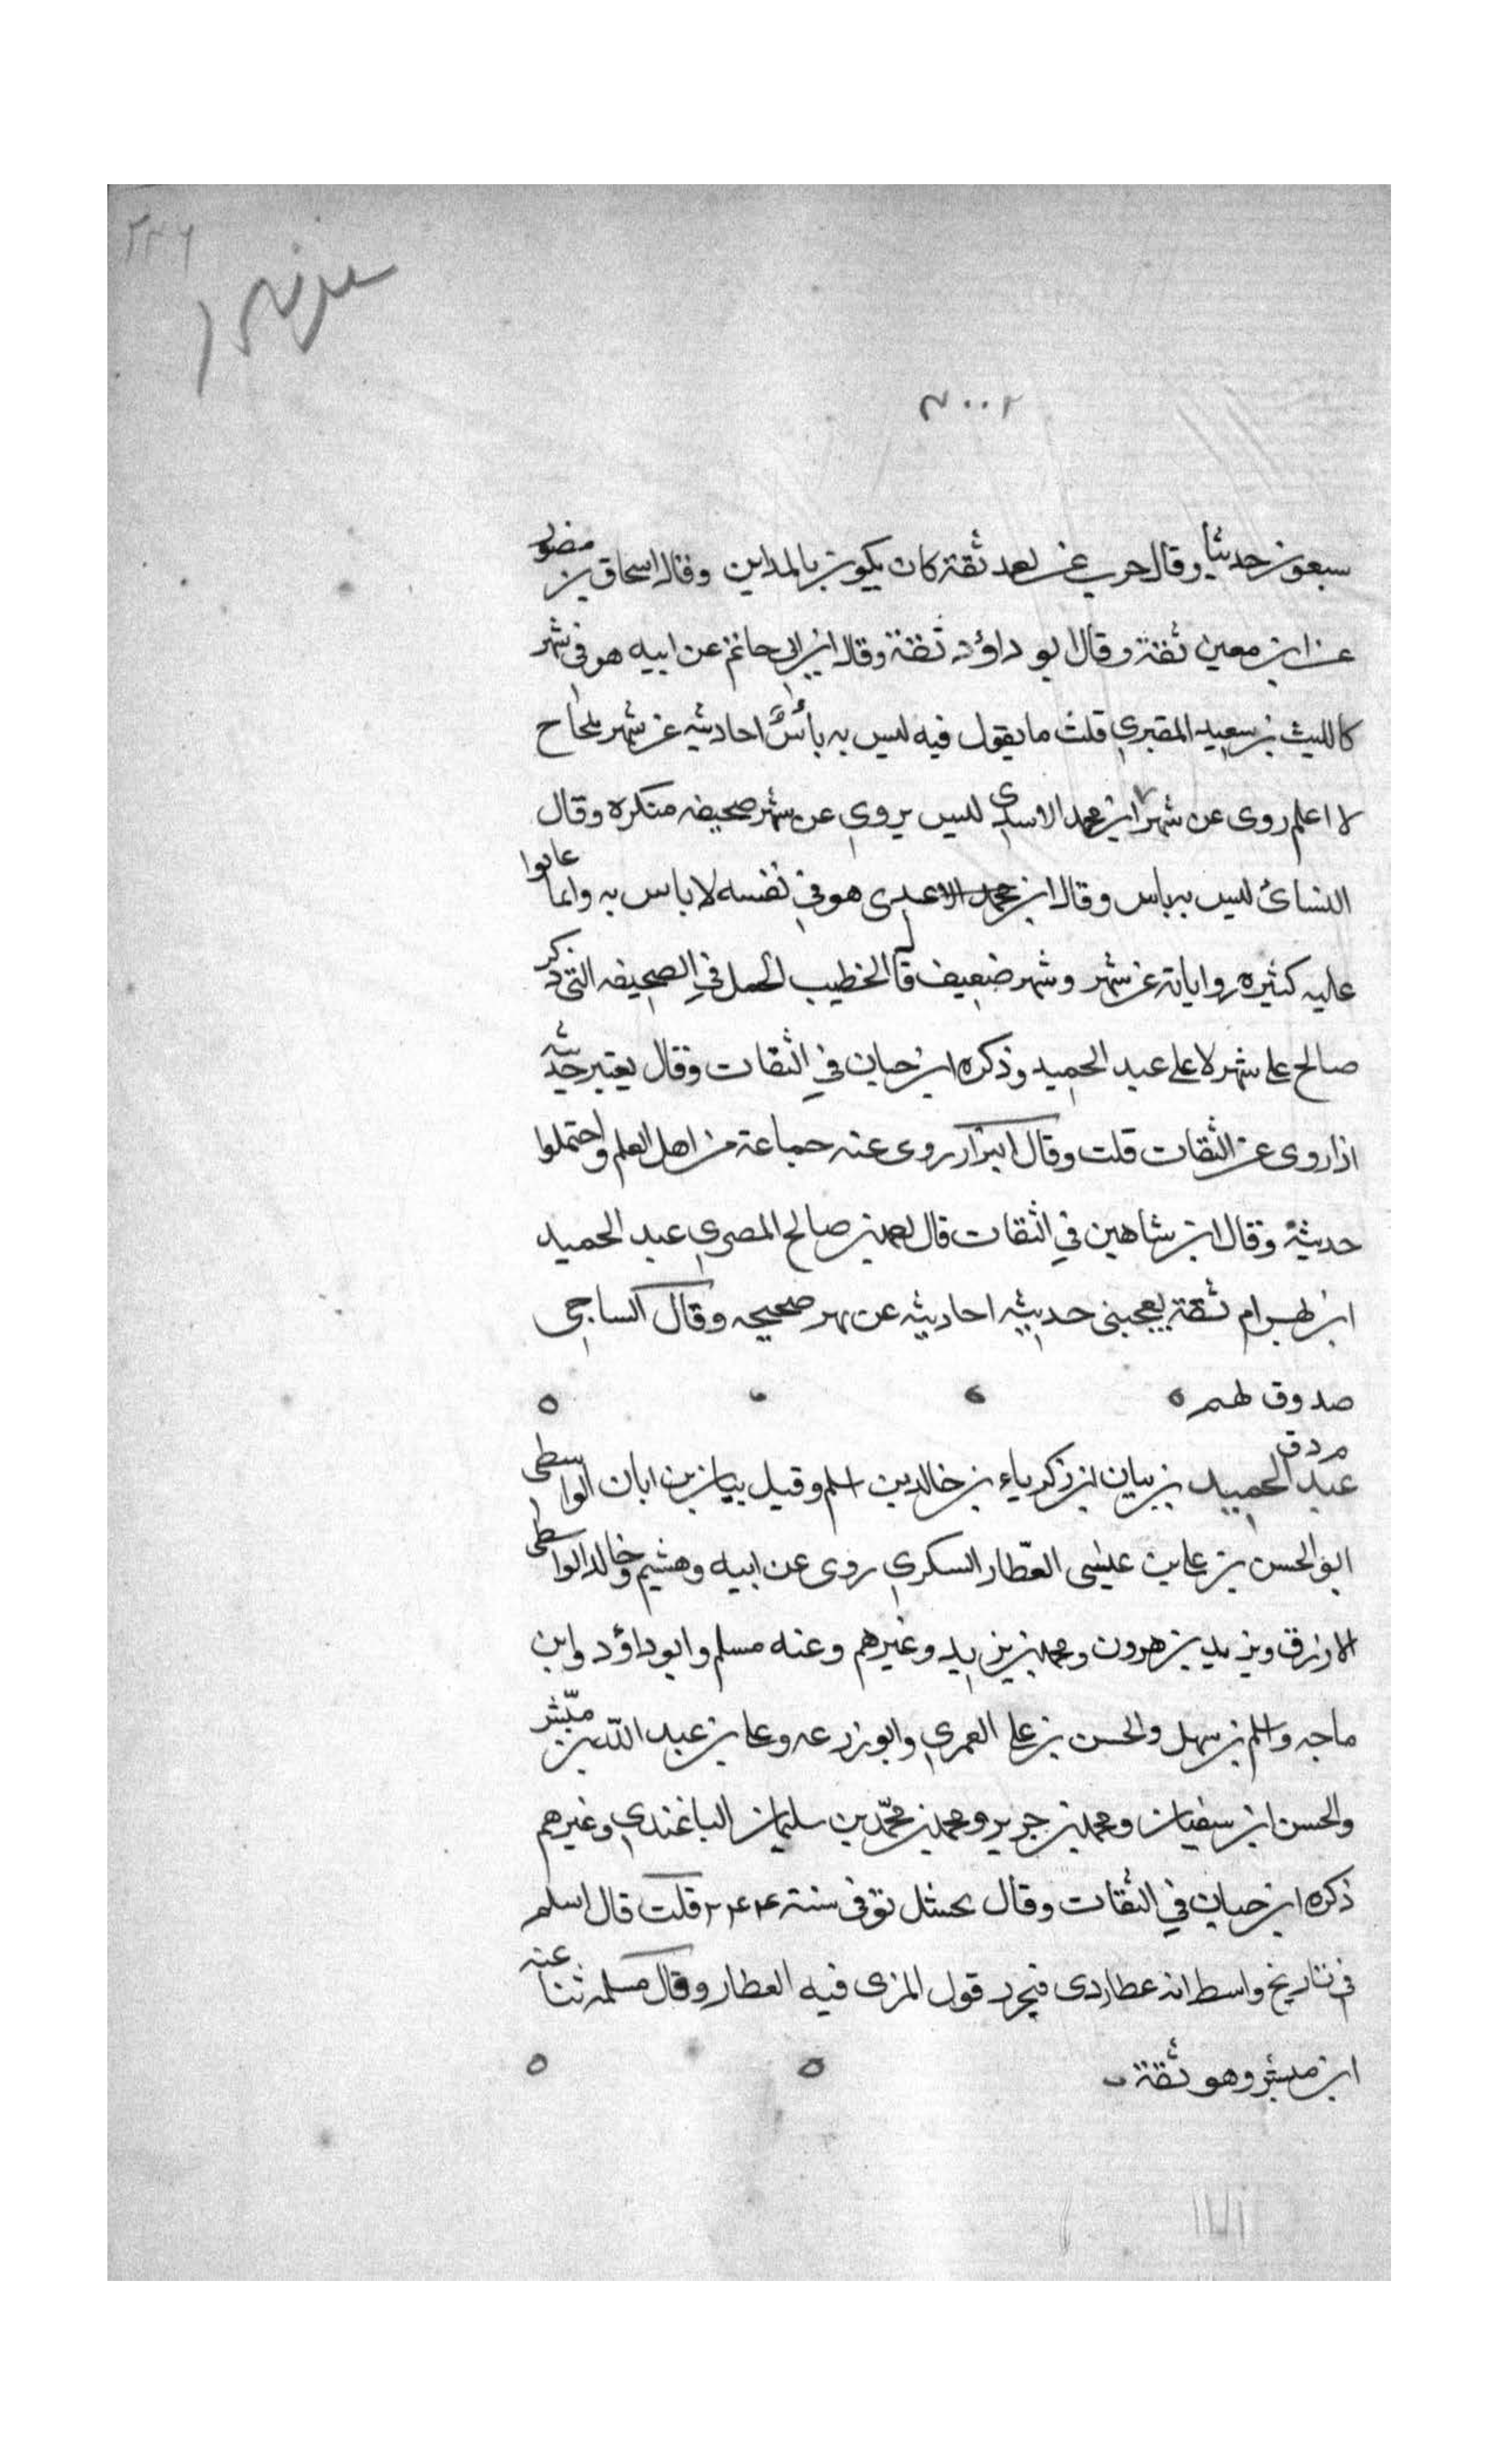 سبعون حديثا وقال حرب عن احمد ثقة كان يكون بالمداين وقال اسحاق بن منصور
عن ابن معين ثقة وقال ابو داؤد ثقة وقال ابن ابى حاتم عن ابيه هو فى شهر
كالليث بن سعيد المقبري قلت ما يقول فيه ليس به بأس احاديثه عن شهر صحاح
لا اعلم روى عن شهر ابن محمد الاسدى ليس يروي عن شهر صحيفه منكره وقال
النسائ ليس به باس وقال ابن هو في نفسه لا باس به وانما عابوا
عليه كثيره رواياته عن شهر وشهر ضعيف قال الخطيب الحمل في الصحيفه التى ذكر
صالح على شهر لا على عبد الحميد وذكره ابن حبان في الثقات وقال يعتبر حديثه
اذا روى عن الثقات قلت وقال البزار روى عنه جماعة من اهل العلم واحتملوا
حديثه وقال ابن شاهين في الثقات قال احمد بن صالح المصري عبد الحميد
ابن بهرام ثقة يعجبنى حديثه احاديثه عن شهر صحيحه وقال الساجى
صدوق يهم
م د ق
عبد الحميد بن بيان بن زكرياء بن خالد بن اسلم وقيل بيان بن ابان الواسطى
ابو الحسن بن على بن عيسى العطار السكري روى عن ابيه وهشيم وخالد الواسطى
الازرق ويزيد بن هرون ومحمد بن يزيد وغيرهم وعنه مسلم وابو داؤد وابن
ماجه واسلم بن سهل والحسن بن على العمري وابو زرعه وعلى بن عبد الله بن مبشر
والحسن ابن سفيان ومحمد بن جرير ومحمد بن محمد بن سليمان الباغندي وغيرهم
ذكره ابن حبان في الثقات وقال بحشل توفى سنة ٢٤٤ قلت قال اسلم
في تاريخ واسط انه عطاردى فيحرر قول المزى فيه العطار وقال مسلمه ثنا عنه
ابن مبشر وهو ثقة